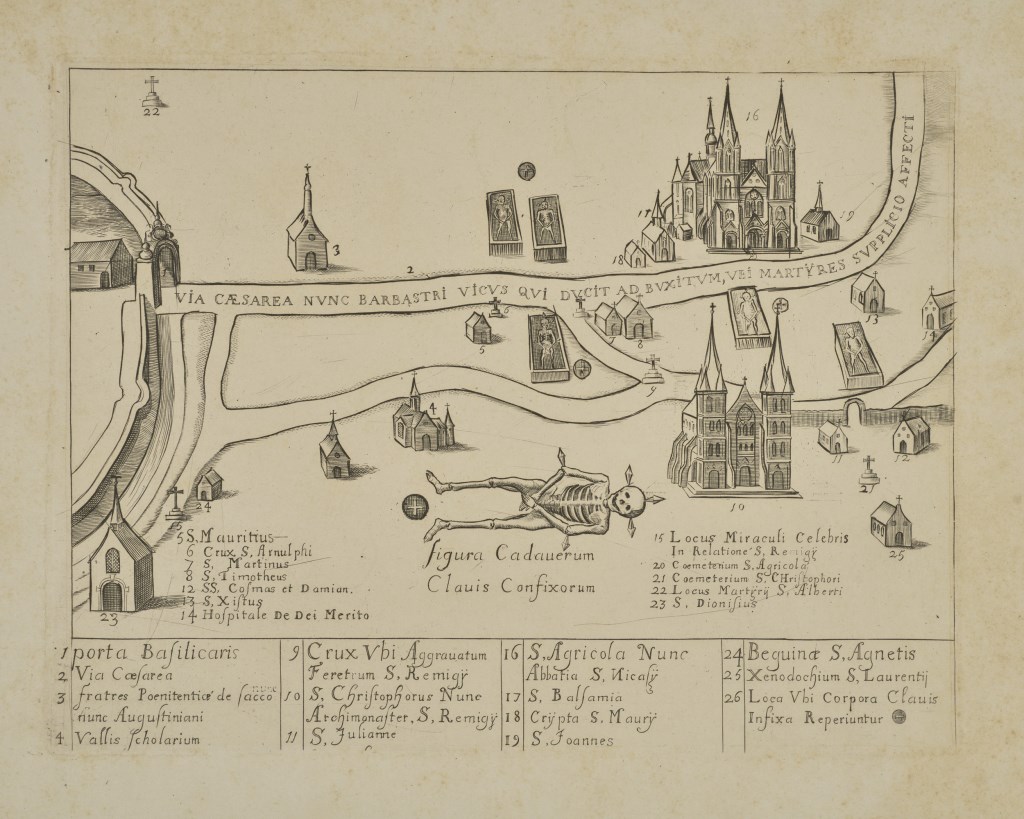 22
16
VIA CÆSAREA NVNC BARBASTRI VICVS QVI DVCIT AD BVXITVM, VBI MARTŸRES SVPPLICIO AFFECTI
3
2
17
18
19
5
6
7
8
9
13
14
4
10
11
12
21
24
25
15
23
figura Cadauerum
Clauis Confixorum
5 S, Mauritius
6 Crux S, Arnulphi
7 S, Martinus
8 S, Timotheus
12 SS, Cosmas et Damian.
13 S, Xistus
14 Hospitale De Dei Merito
15 Locus Miraculi Celebris
In Relatione S, Remigÿ
20 Coemeterium S, Agricola
21 Coemeterium S, CHristophori
22 Locus Martyrÿ S, Alberti
23 S, Dionisius
1 porta Basilicaris
2 Via Cæsarea
3 fratres Poenitentiæ de sacco nunc
nunc Augustiniani
4 Vallis scholarium
9 Crux Vbi Aggrauatum
Feretrum S, Remigÿ
10 S, Christophorus Nunc
Archimonaster, S, Remigÿ
11 S, Julianne
16 S, Agricola Nunc
Abbatia S, Nicasÿ
17 S, Balsamia
18 Crÿpta S, Maurÿ
19 S, Joannes
24 Beguinæ S, Agnetis
25 Xenodochium S, Laurentij
26 Loca Vbi Corpora Clauis
Infixa Reperiuntur